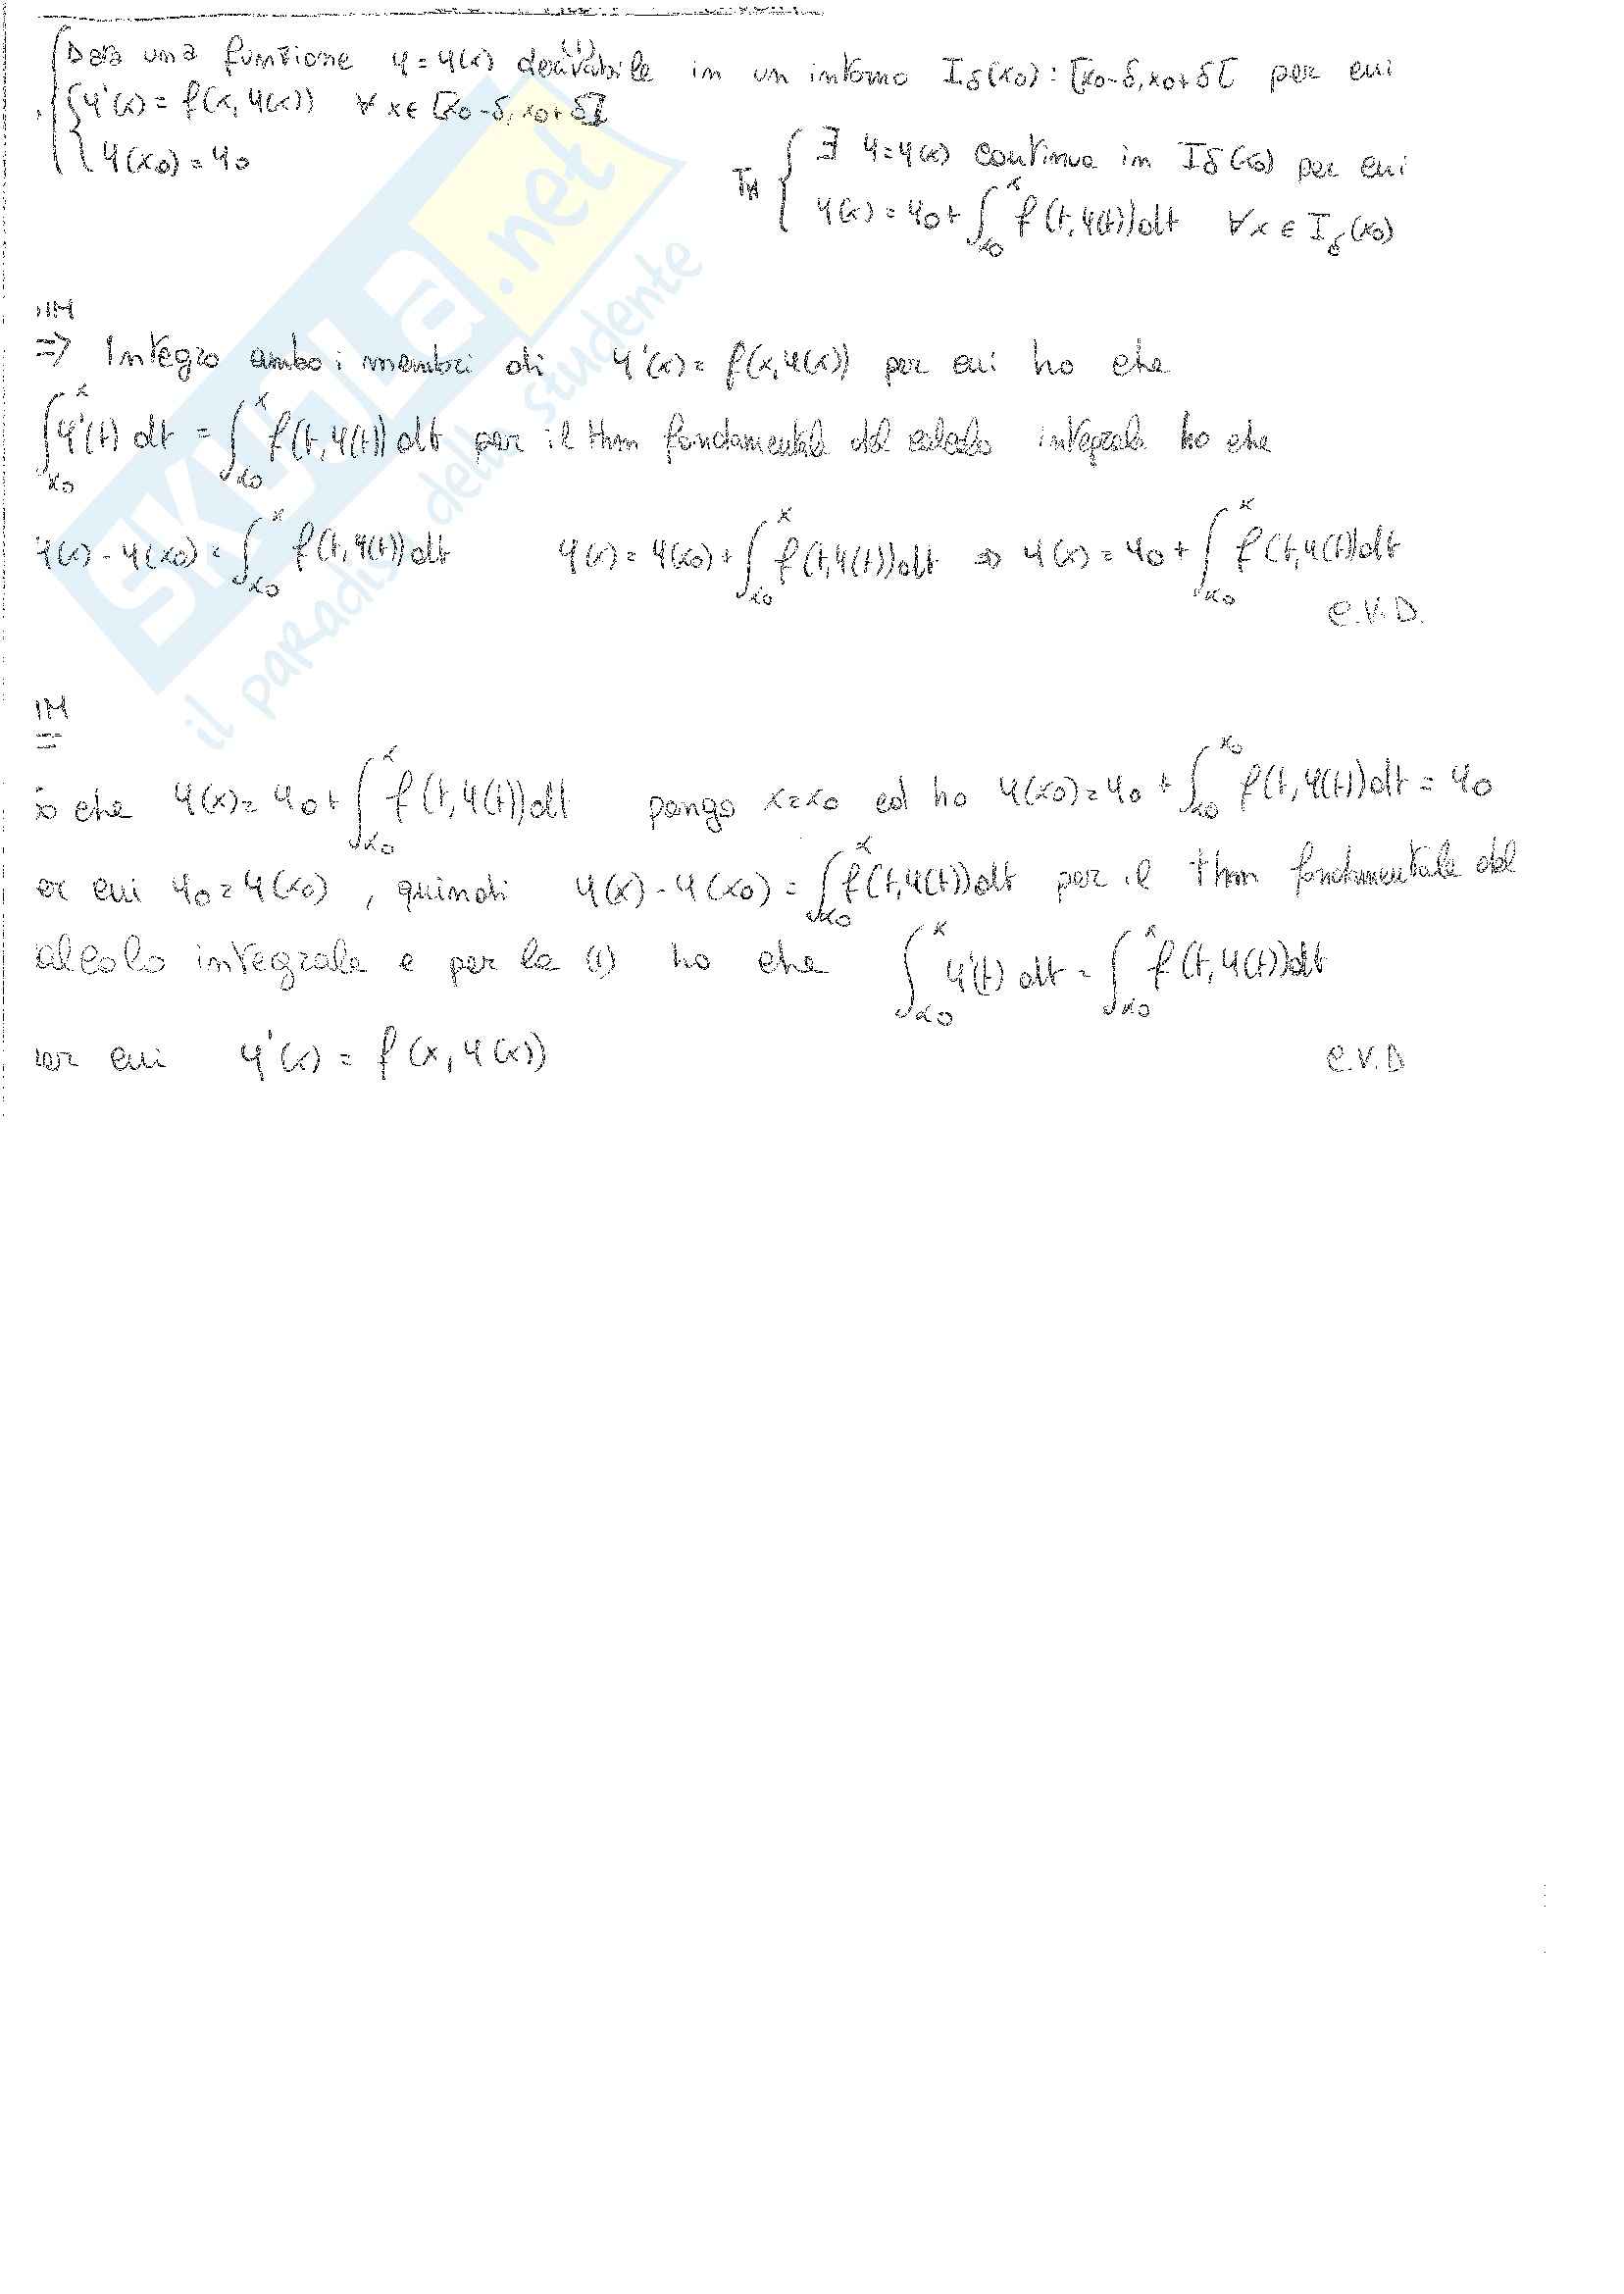 Data una funzione y = y(x) derivabile (1) in un intorno Iδ(x0) : [x0-δ, x0+δ[ per cui
{ y'(x) = f(x, y(x)) ∀ x ∈ [x0-δ, x0+δ]
{ y(x0) = y0
TH { ∃ y = y(x) continua in Iδ(x0) per cui
y(x) = y0 + ∫_{x0}^{x} f(t, y(t)) dt ∀ x ∈ Iδ(x0)
IM
⇒ Integro ambo i membri di y'(x) = f(x, y(x)) per cui ho che
∫_{x0}^{x} y'(t) dt = ∫_{x0}^{x} f(t, y(t)) dt per il thm fondamentale del calcolo integrale ho che
y(x) - y(x0) = ∫_{x0}^{x} f(t, y(t)) dt y(x) = y(x0) + ∫_{x0}^{x} f(t, y(t)) dt ⇒ y(x) = y0 + ∫_{x0}^{x} f(t, y(t)) dt
C.V.D.
IM
=
o che y(x) = y0 + ∫_{x0}^{x} f(t, y(t)) dt pongo x = x0 ed ho y(x0) = y0 + ∫_{x0}^{x0} f(t, y(t)) dt = y0
er cui y0 = y(x0) , quindi y(x) - y(x0) = ∫_{x0}^{x} f(t, y(t)) dt per il thm fondamentale del
alcolo integrale e per la (1) ho che ∫_{x0}^{x} y'(t) dt = ∫_{x0}^{x} f(t, y(t)) dt
er cui y'(x) = f(x, y(x))
C.V.D
SKUOLA.net
il paradiso dello studente